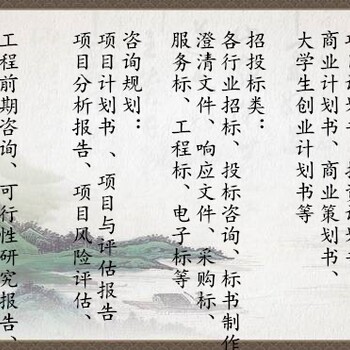 商业计划书、商业策划书、
大学生创业计划书等
招投标类：
各行业招标、投标咨询、标书制作
澄清文件、响应文件、采购标、
服务标、工程标、电子标等
咨询规划：
项目计划书、项目与评估报告
项目分析报告、项目风险评估、
工程前期咨询、可行性研究报告、